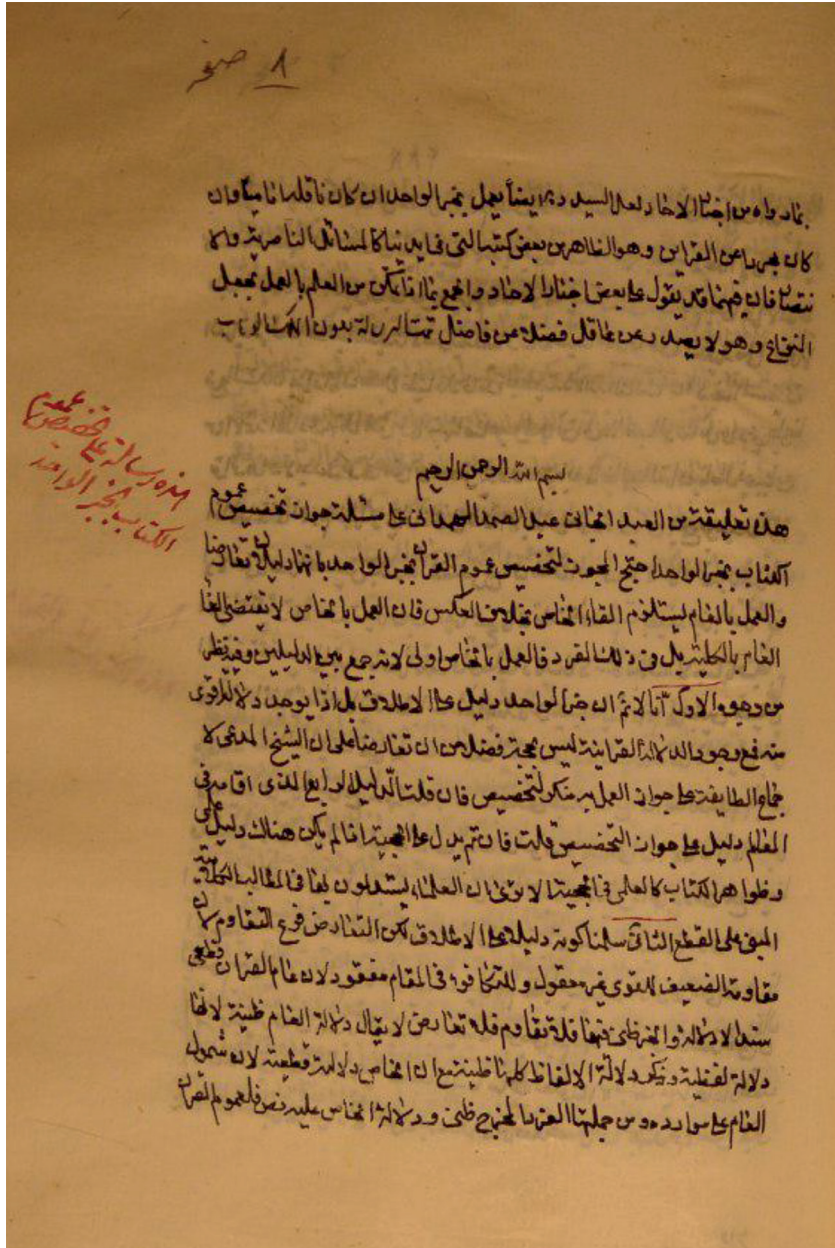 ٨ صفحه
بما رواه من اخبار الاحاد لعل السيد ره ايضا يعمل بخبر الواحد ان كان ناقله اماميا وان
كان مجردا عن القراين وهو الظاهر من بعض كتبه التى فى ايدينا كالمسائل الناصرية والا
فان فيهما قد يقول على بعض اخبار الاحاد والجمع بما اذا تمكن من العلم بالعمل يجعل
النزاع وهو لا يصدر عن عاقل فضلا عن فاضل تمت الرسالة بعون الملك الوهاب
بسم الله الرحمن الرحيم
هذه تعليقة من العبد الجانى عبد الصمد الهمدانى على مسئلة جواز تخصيص عموم
الكتاب بخبر الواحد احتج المجوز لتخصيص عموم القران بخبر الواحد بانهما دليلان تعارضا
والعمل بالعام يستلزم الغاء الخاص بخلاف العكس فان العمل بالخاص لا يقتضى الغا
العام بالكلية بل فى ذلك الفرد فالعمل بالخاص اولى لانه جمع بين الدليلين وفيه نظر
من وجوه الاول انا لا نم ان خبر الواحد دليل على الاطلاق بل اذا يوجد دلالة اقوى
منه فمع وجود الدلالة القراينة ليس بحجة فضلا من ان تعارضها على ان الشيخ المدعى لا
جماع الطايفة على جواز العمل به منكر لتخصيص فان قلت الدليل الرابع الذى اقامه فى
المعالم دليل على جواز التخصيص قلت فان تم يدل على الحجية اذا لم يكن هناك دليل علمى
وظواهر الكتاب كالعلمى فى الحجية الا ترى ان العلماء يستدلون بها فى المطالب الكلامية
المبنى على القطع الثانى سلمنا كونه دليلا على الاطلاق لكن التعارض فرع التقاوم لان
مقاومة الضعيف للقوى غير معقول والتكافوء فى المقام مفقود لان عام القران قطعى
سندا لا دلالة والخبر ظنى فيهما فلا تقاوم فلا تعارض لا يقال دلالة العام ظنية لانها
دلالة لفظية و دلالة الالفاظ كلها ظنية مع ان الخاص دلالته قطعية لان شمول
العام على موارده ومن جملتها الفرد المخرج ظنى ودلالة الخاص عليه نص فلعموم القران
هذه رسالة على تخصيص عموم
الكتاب بخبر الواحد